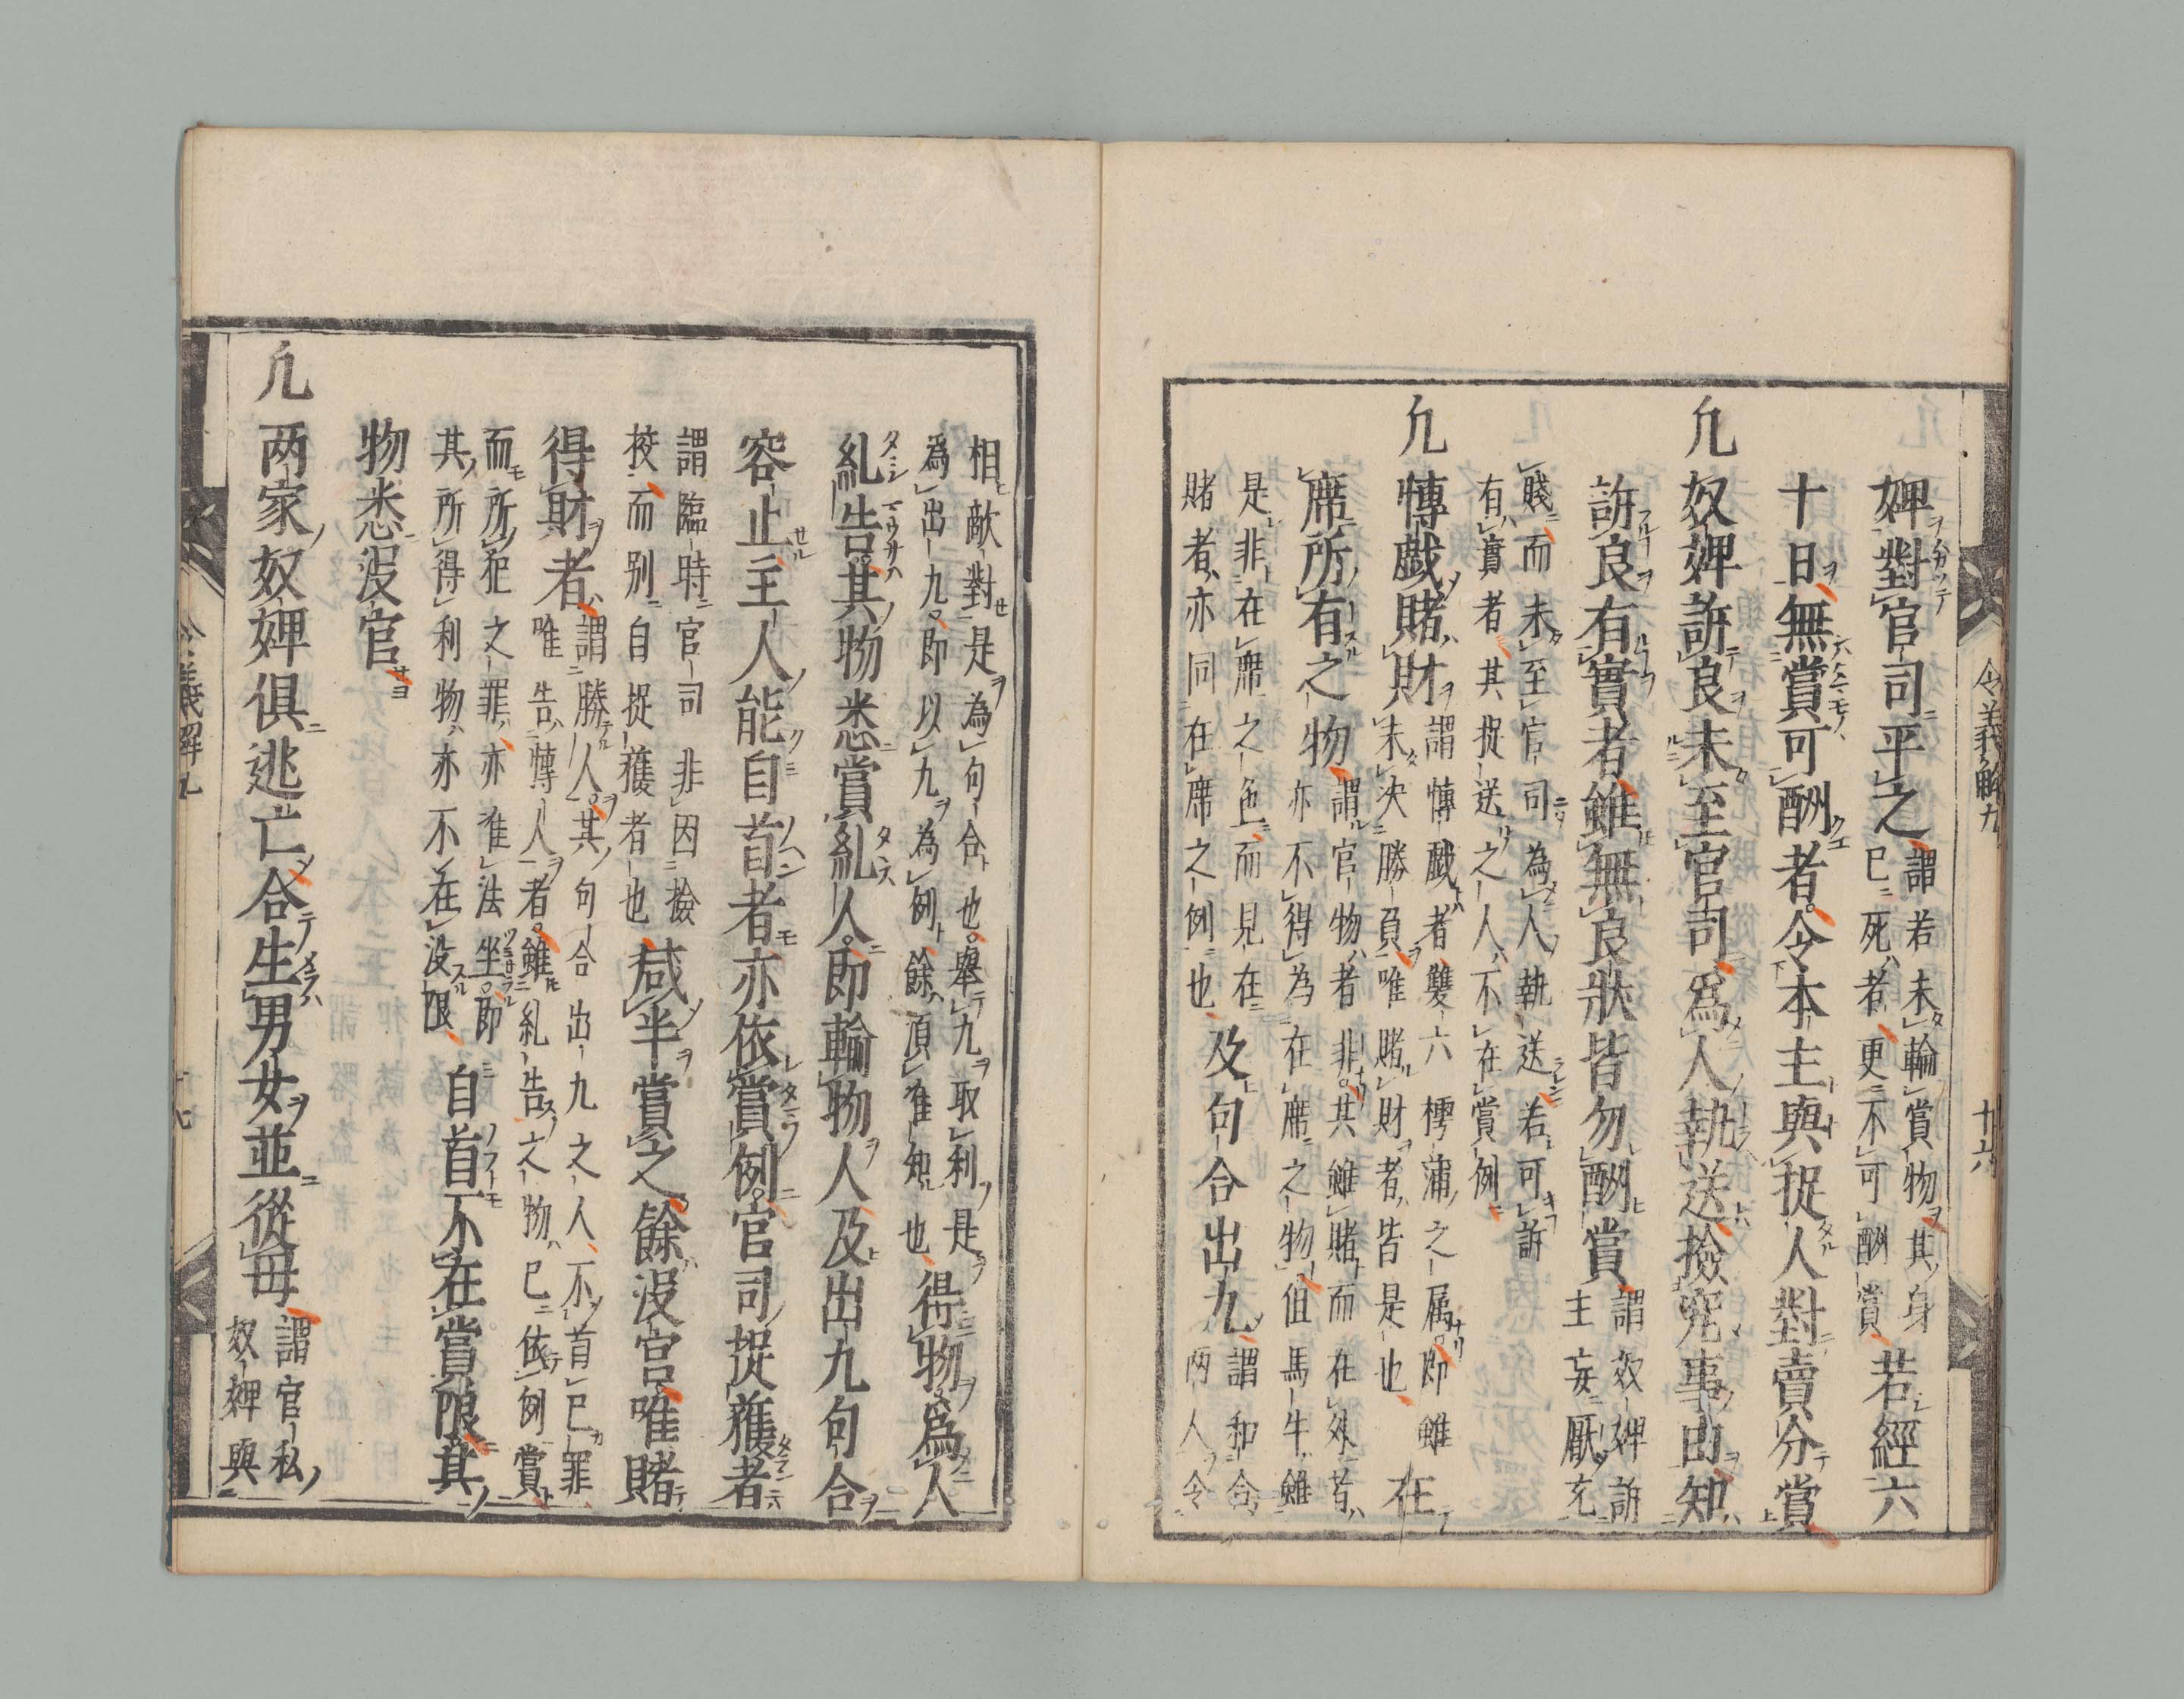 令義解九 廿六
婢對官司平之謂若未輸賞物其身
已死者更不可酬賞若經六
十日無賞可酬者令本主與捉人對賣分賞
凢奴婢訴良未至官司爲人執送撿究事由知
訴良有實者雖無良狀皆勿酬賞謂奴婢訴
主妄厭充
賤而未至官司為人執送若可訴
有實者其捉送之人不在賞例
凢博戯賭財謂博戯者雙六樗蒲之属即雖
未决勝負唯賭財者皆是也在
席所有之物謂官物者非其雖賭而在外者
亦不得為在席之物但馬牛雖
是非在席之色而見在
賭者亦同在席之例也及句合出九謂和合
两人令
相敵對是為句合也舉九取利是
為出九即以九為例餘須准知也得物爲人
糺告其物悉賞糺人即輸物人及出九句合
容止主人能自首者亦依賞例官司捉獲者
謂臨時官司非因撿
挍而别自捉獲者也减半賞之餘没官唯賭
得財者謂勝人其句合出九之人不首已罪
唯告博人者雖糺告之物已依例賞
而所犯之罪亦准法坐即
其所得利物亦不在没限自首不在賞限其
物悉没官
凢两家奴婢俱逃亡合生男女並從母謂官私
奴婢與